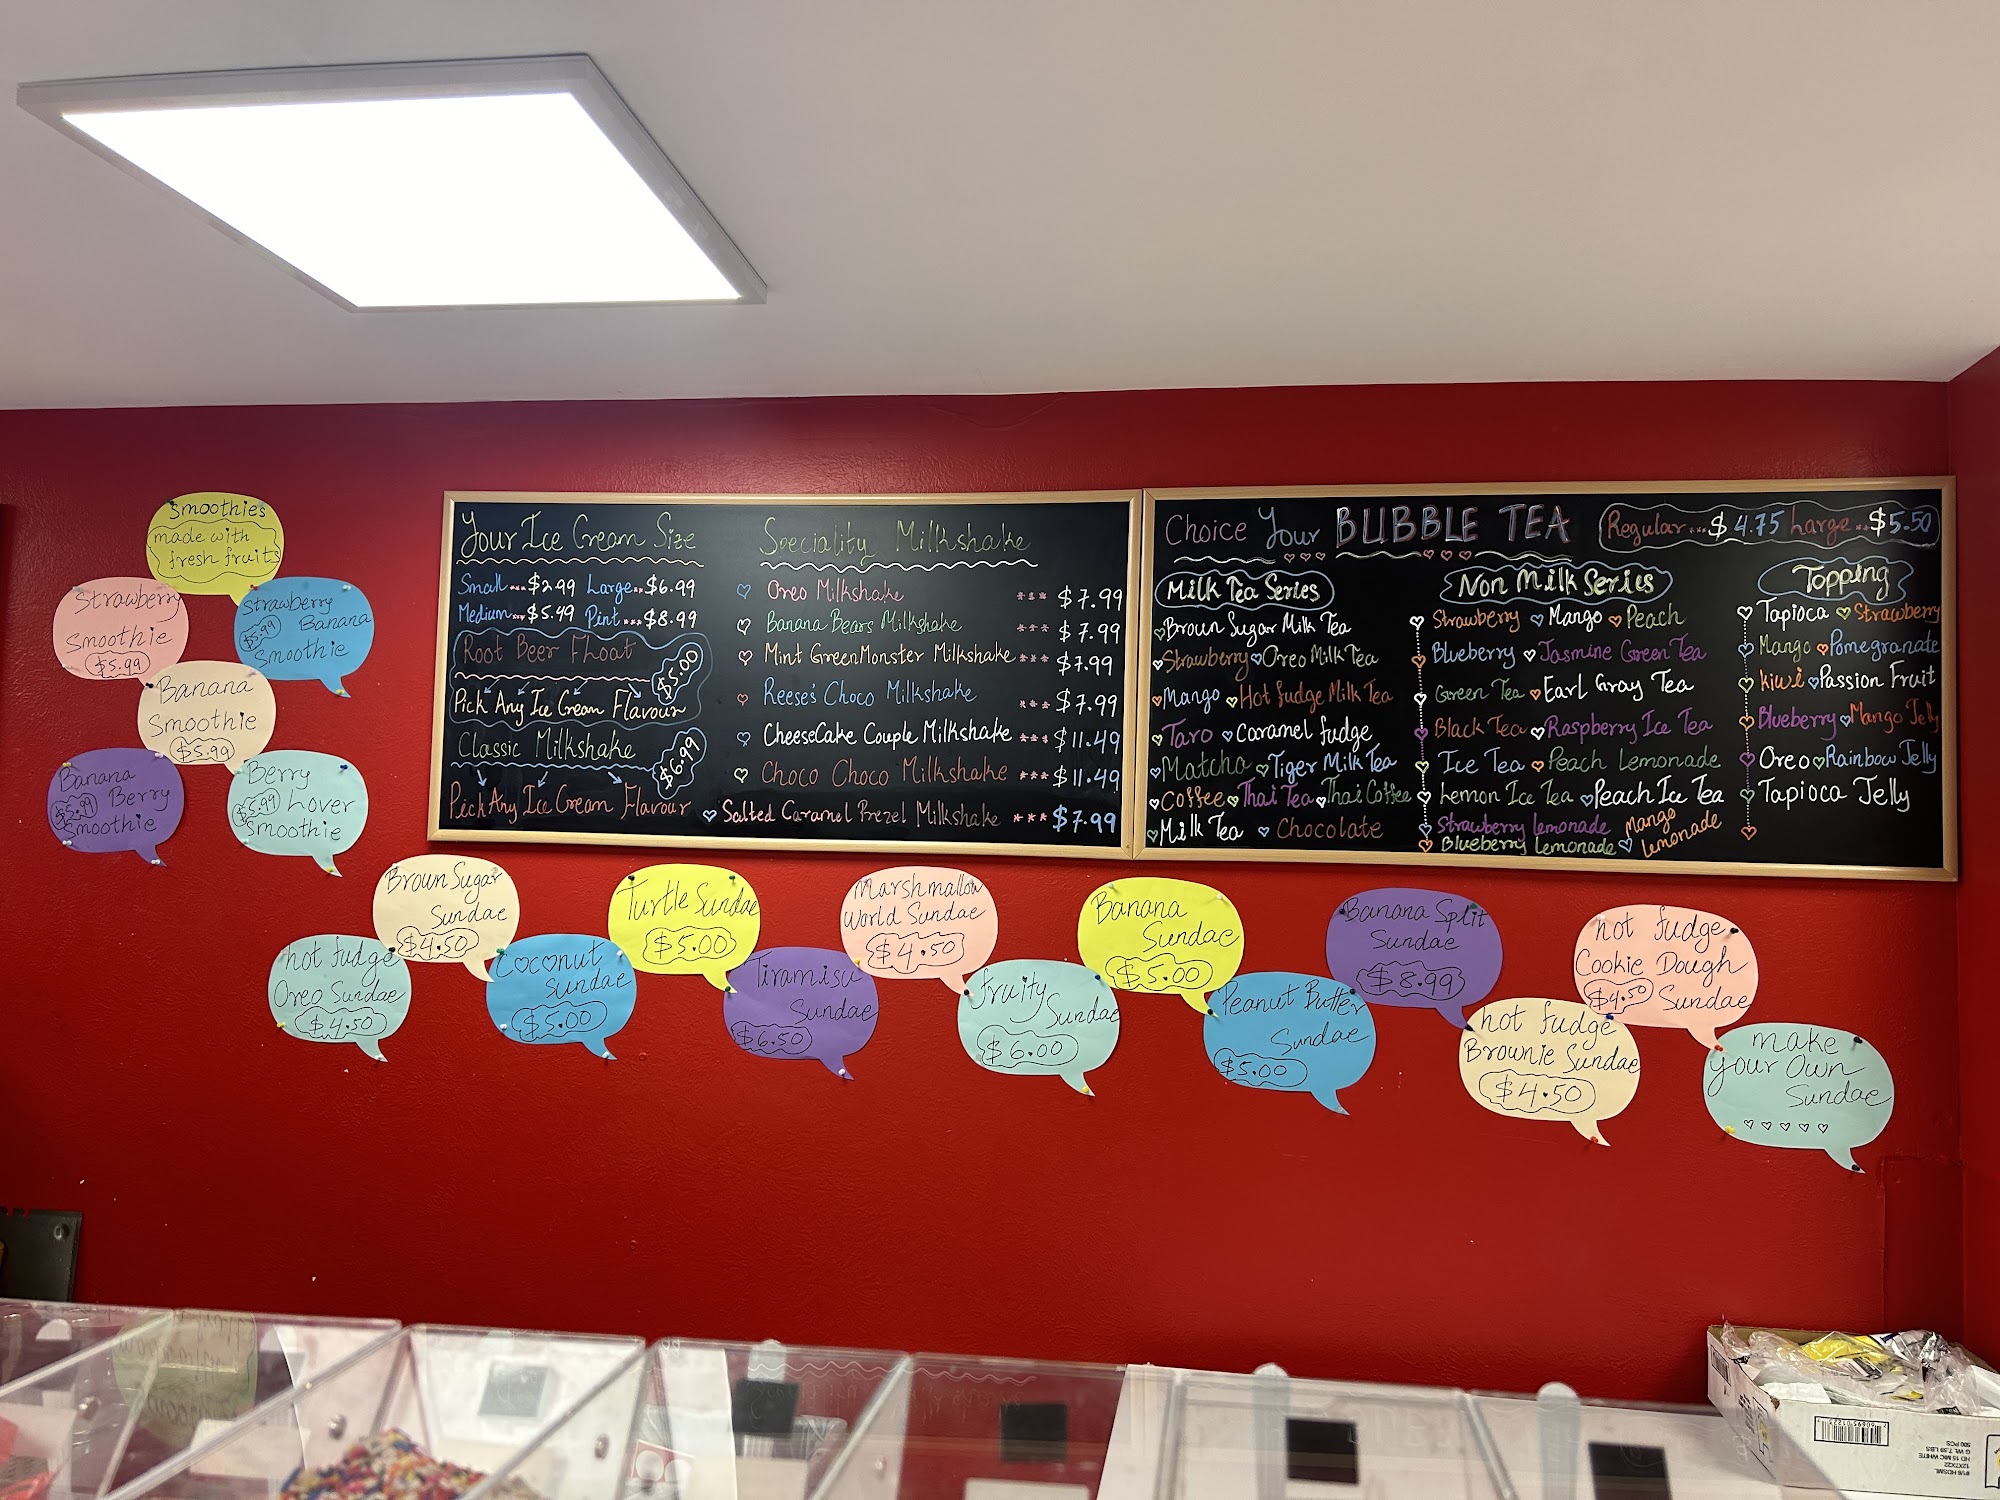 Smoothie's
made with
fresh fruits
Strawberry
Smoothie
$5.99
Strawberry
$5.99 Banana
Smoothie
Banana
Smoothie
$5.99
Banana
$5.99 Berry
Smoothie
Berry
$5.99 Lover
Smoothie
Your Ice Cream Size
Small $2.99 Large $6.99
Medium $5.49 Pint $8.99
Root Beer Float
$5.00
Pick Any Ice Cream Flavour
Classic Milkshake
$6.99
Pick Any Ice Cream Flavour
Speciality Milkshake
Oreo Milkshake *** $7.99
Banana Bears Milkshake *** $7.99
Mint GreenMonster Milkshake *** $7.99
Reese's Choco Milkshake *** $7.99
CheeseCake Couple Milkshake *** $11.49
Choco Choco Milkshake *** $11.49
Salted Caramel Prezel Milkshake *** $7.99
Choice Your BUBBLE TEA Regular $4.75 Large $5.50
Milk Tea Series
Broun Sugar Milk Tea
Strawberry Oreo Milk Tea
Mango Hot fudge Milk Tea
Taro Caramel fudge
Matcha Tiger Milk Tea
Coffee Thai Tea Thai Coffee
Milk Tea Chocolate
Non Milk Series
Strawberry Mango Peach
Blueberry Jasmine Green Tea
Green Tea Earl Gray Tea
Black Tea Raspberry Ice Tea
Ice Tea Peach Lemonade
Lemon Ice Tea Peach Ice Tea
Strawberry lemonade
Blueberry Lemonade Mango Lemonade
Topping
Tapioca Strawberry
Mango Pomegranate
kiwi Passion Fruit
Blueberry Mango Jelly
Oreo Rainbow Jelly
Tapioca Jelly
Brown Sugar
Sundae
$4.50
hot fudge
Oreo Sundae
$4.50
Turtle Sundae
$5.00
Coconut
Sundae
$5.00
Marshmallow
World Sundae
$4.50
Tiramisu
Sundae
$6.50
Banana
Sundae
$5.00
fruity
Sundae
$6.00
Banana Split
Sundae
$8.99
Peanut Butter
Sundae
$5.00
hot fudge
Cookie Dough
$4.50 Sundae
hot fudge
Brownie Sundae
$4.50
make
your Own
Sundae
#1/6 HDSML
12X7X22
HD 15 MIC WHITE
G WL 7.59 LBS
500 PCS